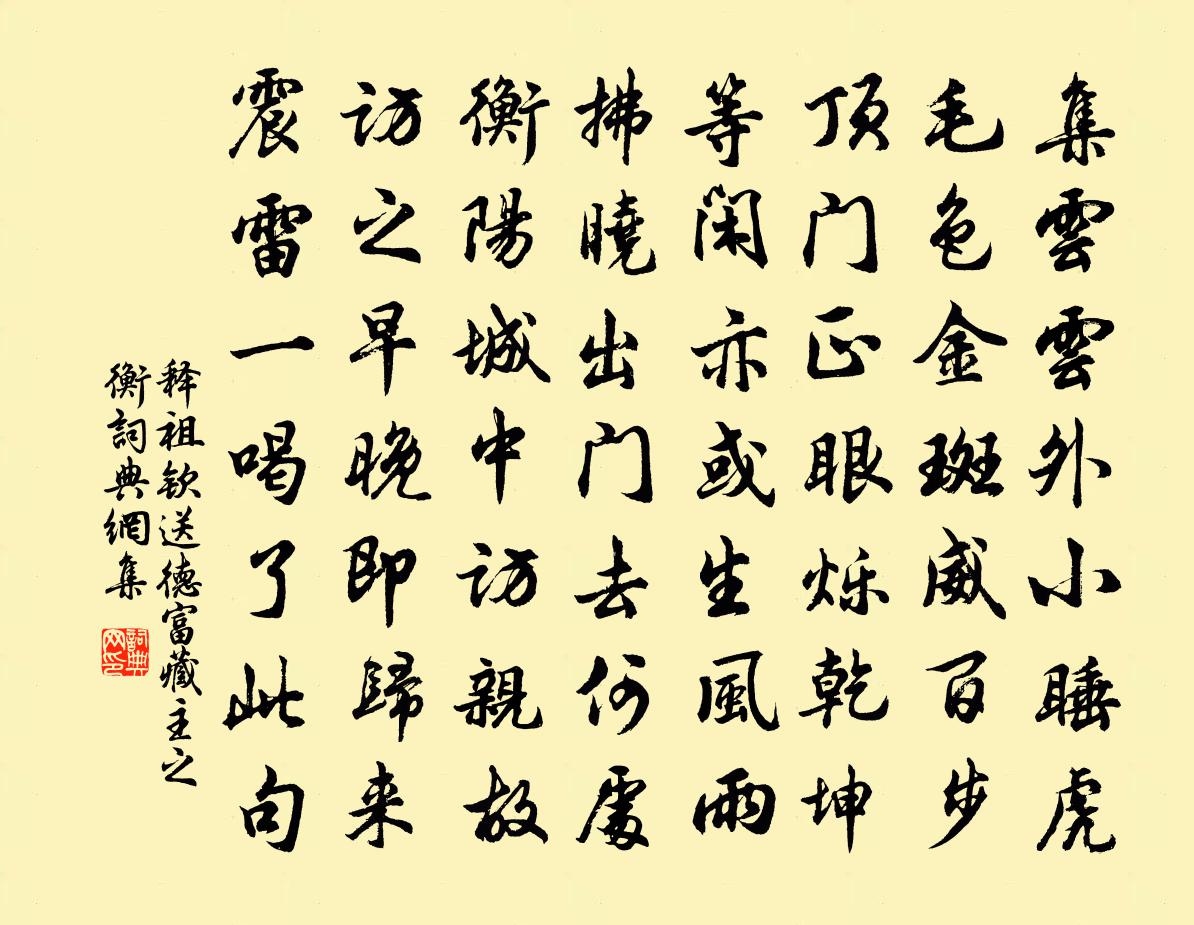 集雲雲外小睡虎
毛色金斑威百步
頂门正眼烁乾坤
等閑亦或生風雨
拂曉出门去何處
衡陽城中訪親故
訪之早晚即歸来
震雷一喝了此句
释祖钦送德富藏主之
衡詞典網集
詞典网印